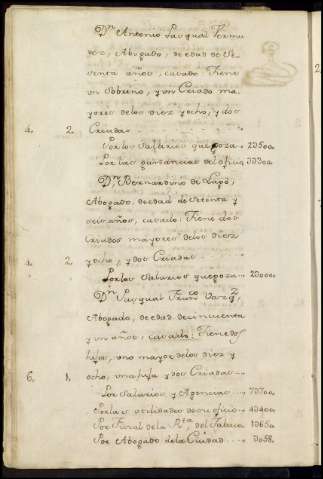 Dn. Antonio Pasqual Bermu
dez, Abogado, de edad de se-
senta años, casado. Tiene
un Sobrino, y un Criado ma-
yores de los diez y ocho, y dos
4. 2 Criadas
Por los Salarios que goza 2350a
Por las ganancias del oficio 3330a
Dn. Bernardino de
Abogado, de edad de setenta y
seis años, casado: Tiene dos
Criados mayores de los diez
4. 2. y ocho, y dos Criadas
Por los Salarios que goza 2000a
Dn. Pasqual Franco
Abogado, de edad de cincuenta
y un años, casado: Tiene dos
hijos, uno mayor de los diez y
6. 1. ocho, una hija, y dos Criadas
Por Salarios y Agencias
Por las utilidades de su oficio 4340a
Por Fiscal de la Rta. del Tabaco 1365a
Por Abogado de la Ciudad 3058.
2